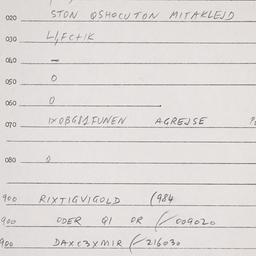 020 STON QSHOCUTON MITAKLEJD
030 L/FC+IK
040 -
050 0
060 0
070 AGREJSE
080 0
900 RIXTIGVIGOLD (984
900 ODER QI OR (/009020
900 DAXC3XMIR (/216030